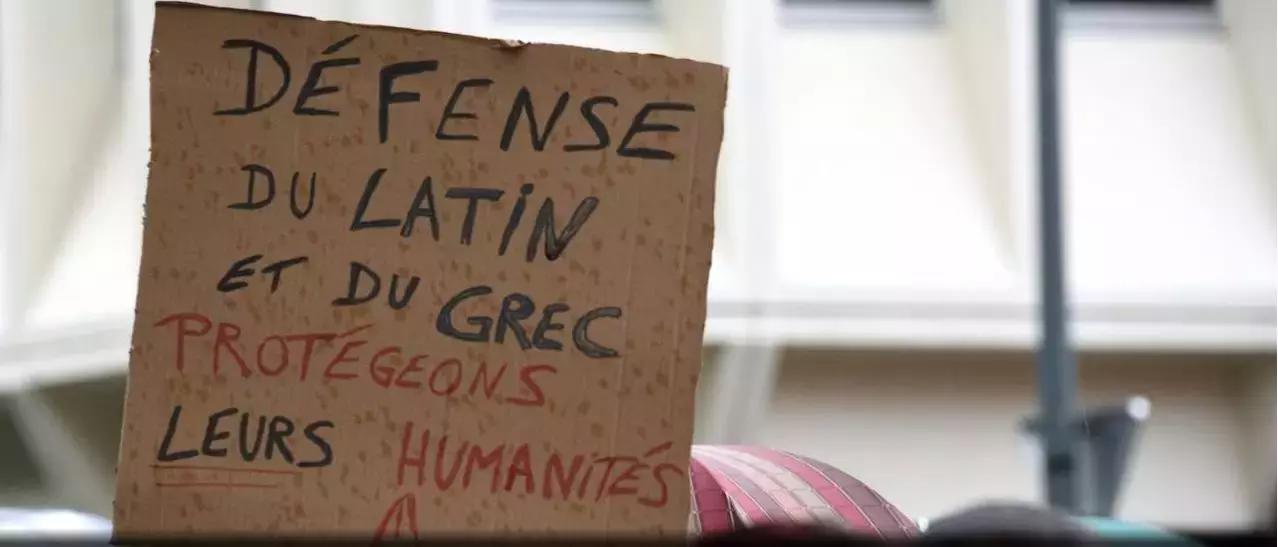 DÉFENSE
DU LATIN
ET DU GREC
PROTÉGEONS
LEURS HUMANITÉS